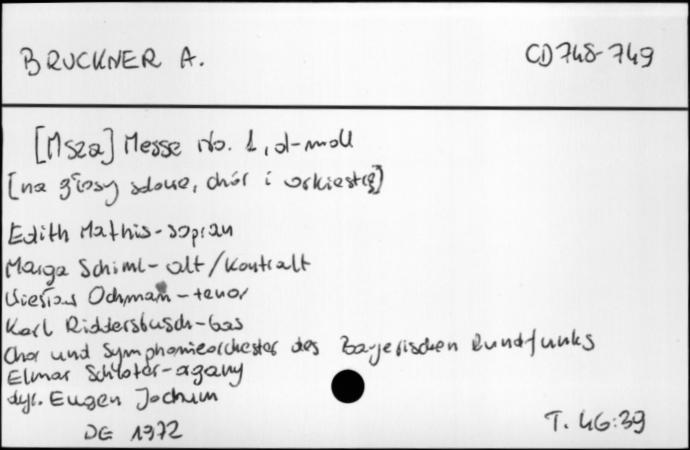 BRUCKNER A.
CD 748-749
[Msza] Messe No. 1, d-moll
[na głosy solowe, chór i orkiestrę]
Edith Mathis - sopran
Marga Schiml - alt / kontralt
Wiesław Ochman - tenor
Karl Ridderbusch - bas
Chor und Symphonieorchester des Bayerischen Rundfunks
Elmar Schloter - organy
dyr. Eugen Jochum
DG 1972
T. 46:39